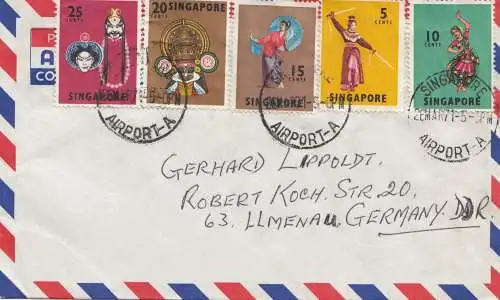 25 CENTS SINGAPORE
20 CENTS SINGAPORE
15 CENTS SINGAPORE
5 CENTS SINGAPORE
10 CENTS SINGAPORE
SINGAPORE
AIRPORT-A
AIRPORT-A
AIRPORT-A
GERHARD LIPPOLDT.
ROBERT KOCH. STR. 20,
63. LLMENAU, GERMANY. DDR